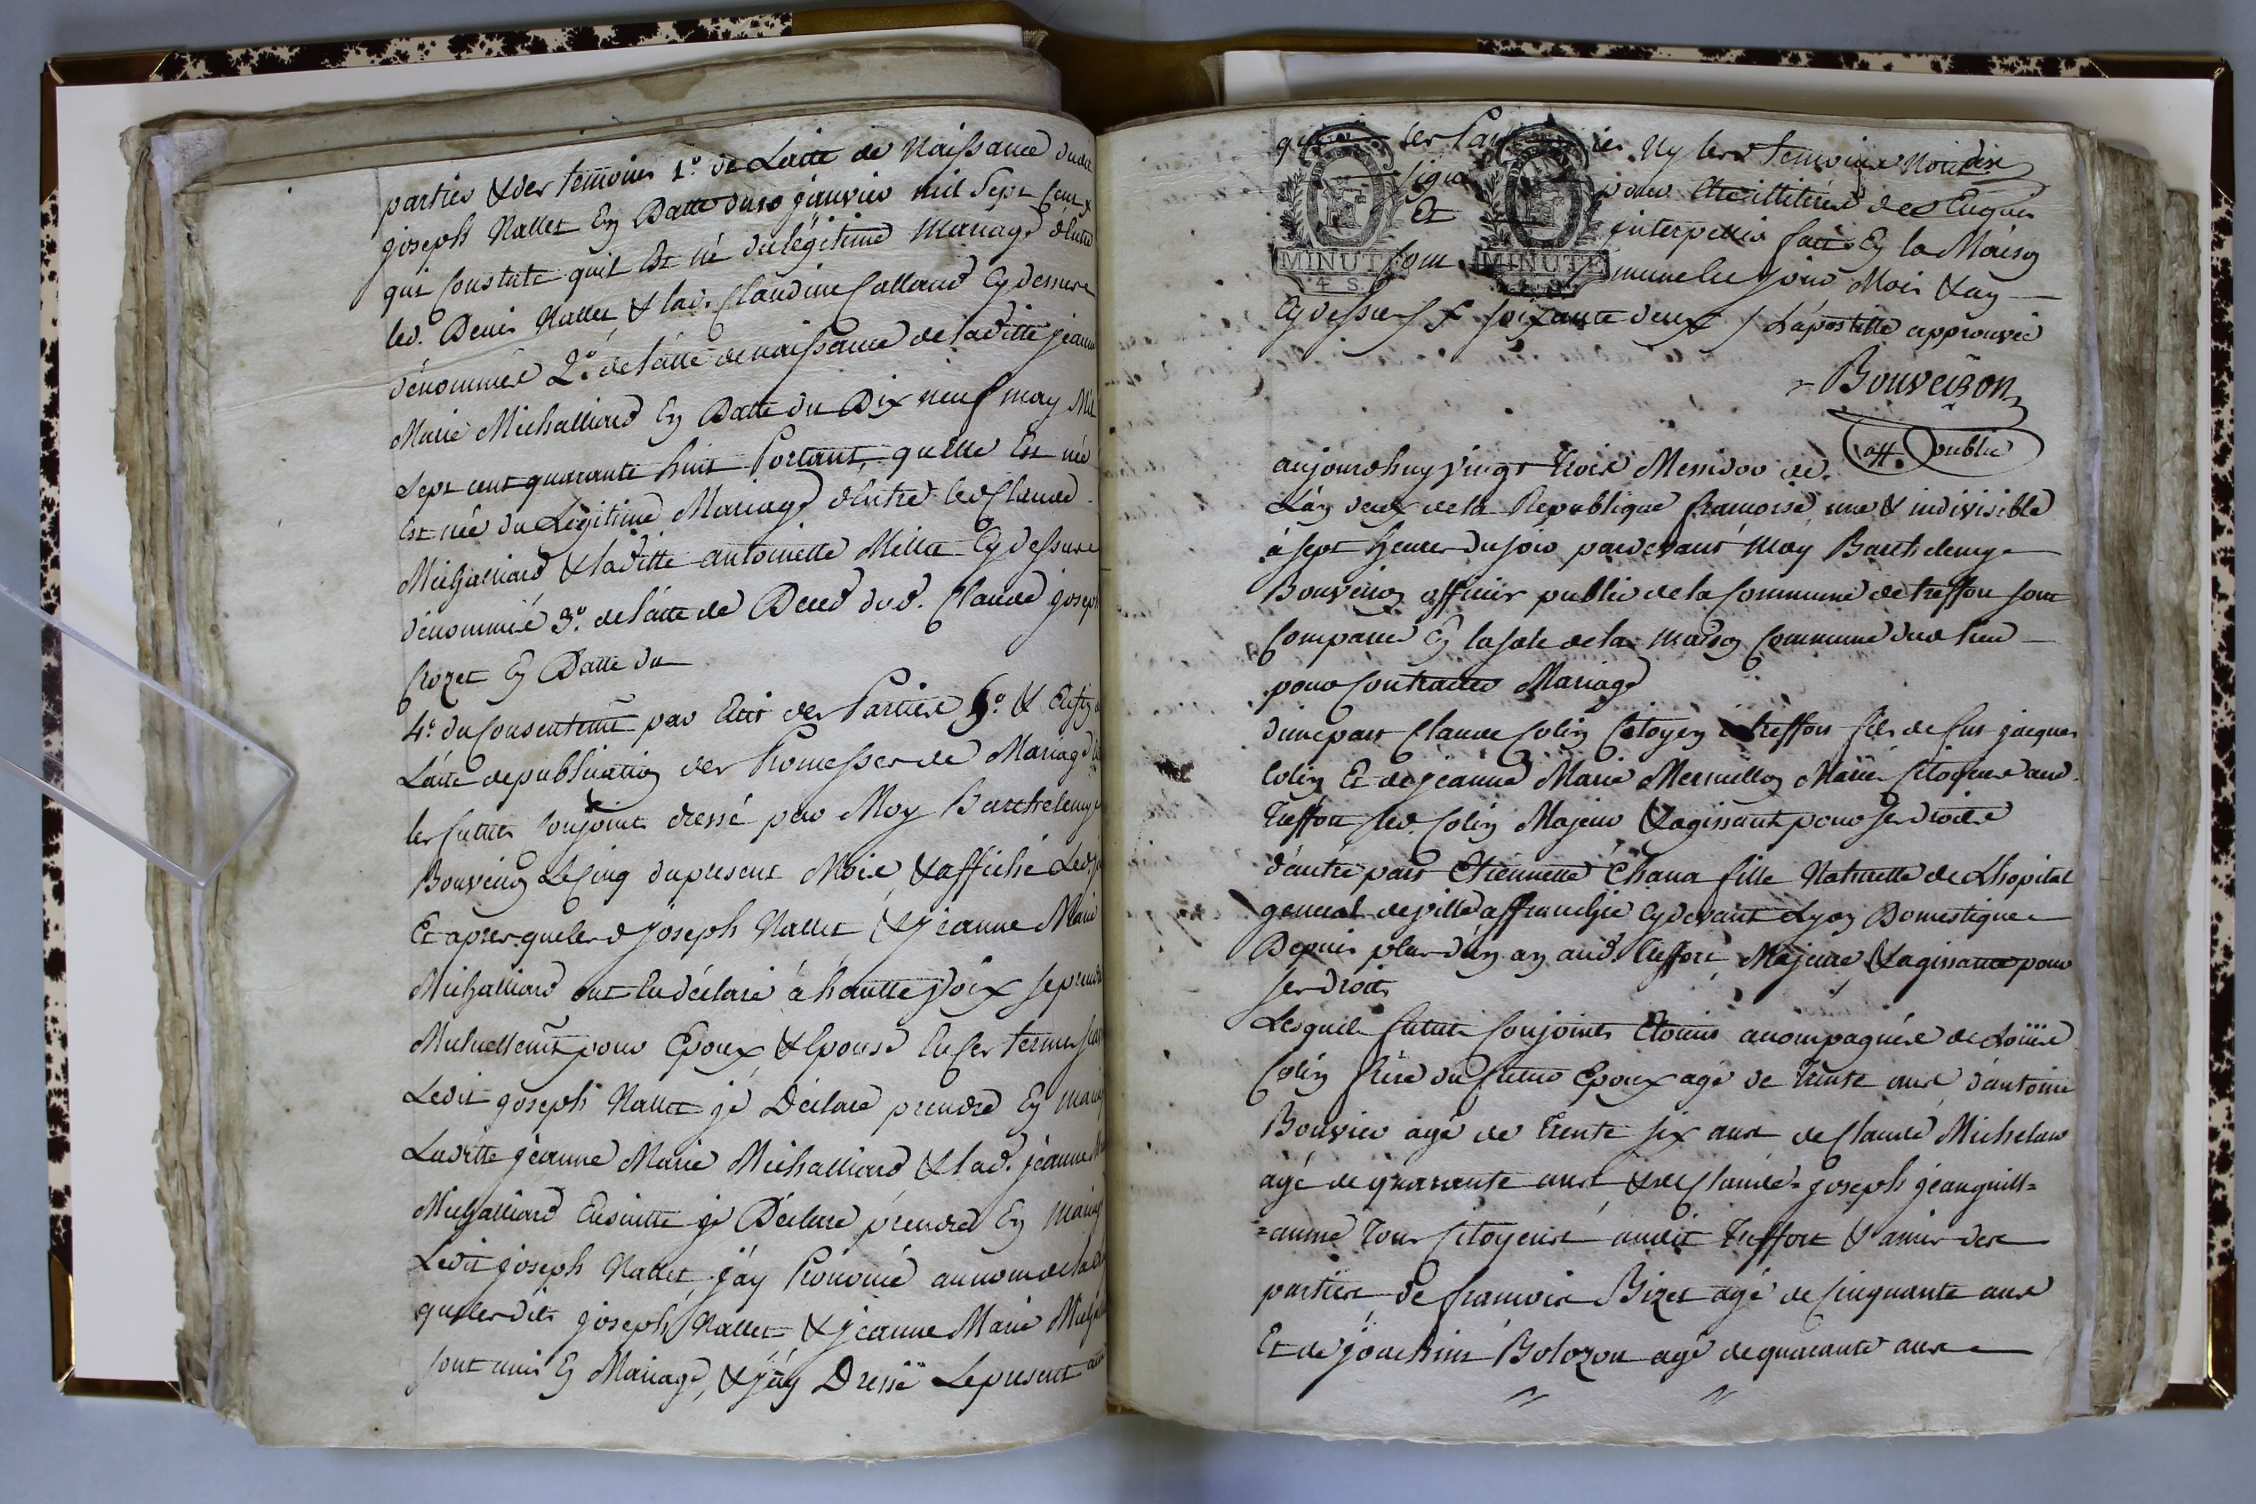 parties & des temoins 1.º de Lacte de Naissance dud.
joseph Nallet En Datte du 10 janvier mil Sept Cent
qui Constate quil Est né du légitime mariage d'Entre
led. Denis Nallet & lad. Claudine Calland Cy dessus
dénommés 2.º de l'acte de naissance de laditte jeanne
Marie Michalliard En Datte du Dix neuf may Mil
Sept cent quarante huit Portant, quelle Est née
Est née du Légitime Mariage d'Entre led. Claude
Michalliard & laditte antoinette Millet Cy dessus
dénommés 3.º de l'acte de Deced dud. Claude joseph
Crozet En Datte du
4.º du Consentemt par Ecrit des Parties 5.º & Enfin
L'acte de publication des Promesses de Mariage
les futurs Conjoints dressé par Moy Barthelemy
Bouveiron Le Cinq du present Mois & affiché Led.
Et après que lesd joseph Nallet & jeanne Marie
Michalliard ont Eu déclaré à hautte Voix se prendre
Mutuellemt pour Epoux & Epouse En Ces termes
Ledit joseph Nallet je Déclare prendre En mariage
Laditte jeanne Marie Michalliard & lad. jeanne
Michalliard Ensuitte je Déclare prendre En mariage
Ledit joseph Nallet j'ay Prononcé au nom de la
que lesdits joseph Nallet & jeanne Marie
sont unis En Mariage, & j'ay Dressé Le present acte
MINUTE
4 S.
MINUTE
Ny les temoins Non
signé pour Etre illitérés de Enquis
Et interpellés fait En la Maison
Com mune les jour Mois & an
Cy dessus f. soixante deux / L'apostille approuvée
Bouveiron
off. public
aujourdhuy vingt trois Messidor de
L'an deux de la Republique francoise une & indivisible
à sept heures du soir pardevant Moy Barthelemy
Bouveiron officier public de la Commune de treffort sont
Comparus En la sale de la maison Commune dud lieu
pour Contracter Mariage
d'une part Claude Colin Citoyen à treffort fils de feu jacques
Colin Et de jeanne Marie Mermillon Mariés Citoyens aud.
Treffort led. Colin Majeur & agissant pour ses droits
d'autre part Etiennette Chana fille Naturelle de L'hopital
general de ville affranchie Cy devant Lyon Domestique
Depuis plus d'un an aud. Treffort Majeure & agissante pour
ses droits
Lesquels futurs Conjoints Etoient acompagnés de Loüis
Colin frère du futur Epoux agé de trente ans d'antoine
Bouvier agé de trente six ans de Claude Michelard
agé de quarante ans & de Claude = joseph jeanguill=
=aume tous Citoyens audit Treffort & amis des
parties de francois Bizet agé de Cinquante ans
Et de joachim Bolozon agé de quarante ans